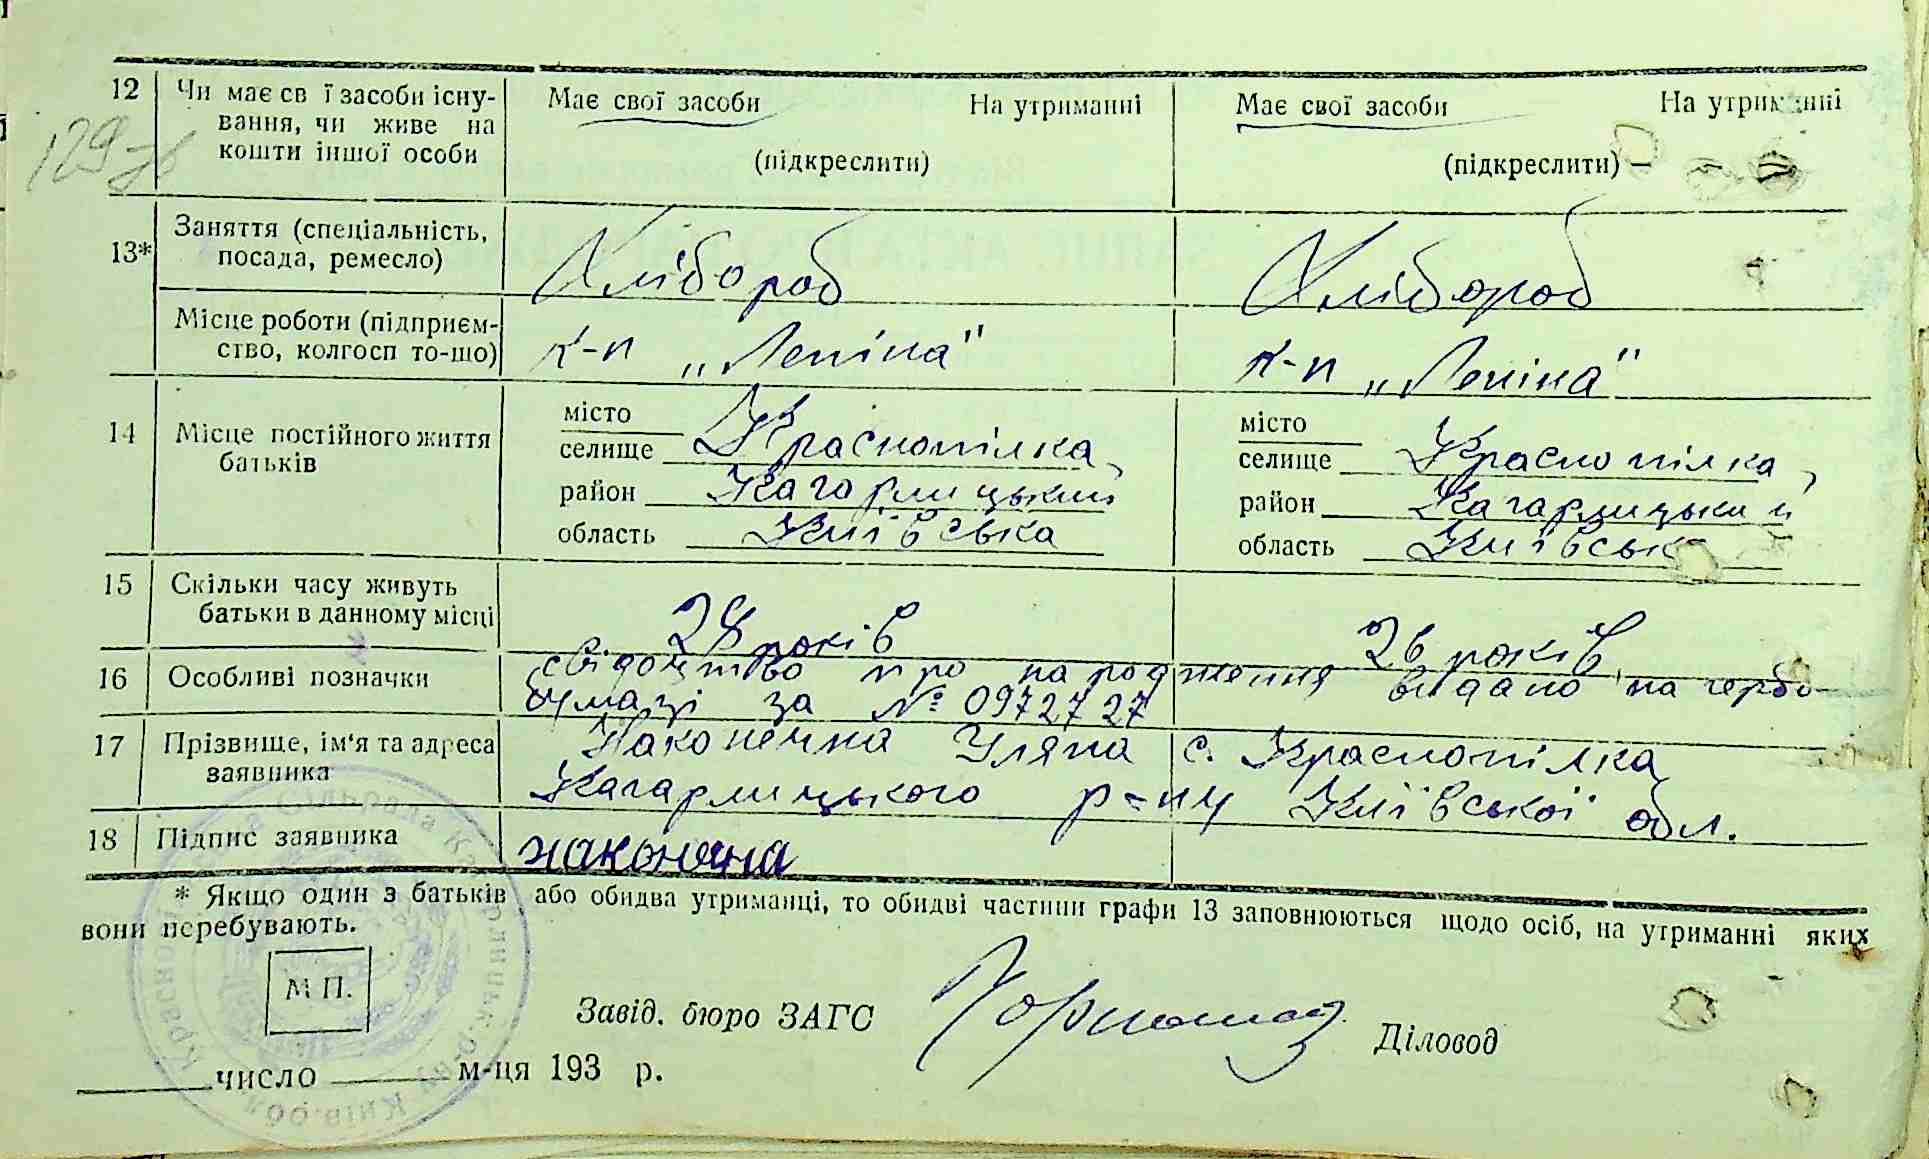 12 Чи має св ї засоби існу- Має свої засоби На утриманні Має свої засоби На утриманні
вання, чи живе на
кошти іншої особи (підкреслити) (підкреслити)
129
Заняття (спеціальність,
13* посада, ремесло) Хлібороб Хлібороб
Місце роботи (підприєм-
ство, колгосп то-що) к-п „Леніна" к-п „Леніна"
14 Місце постійного життя
батьків
місто місто
селище Краснопілка, селище Краснопілка,
район Кагарлицький район Кагарлицький
область Київська область Київська
15 Скільки часу живуть
батьки в данному місці 28 років 26 років
16 Особливі позначки свідоцтво про народження видано на гербо
бумазі за № 0972727
17 Прізвище, ім'я та адреса Наконечна Уляна с. Краснопілка
заявника Кагарлицького р-ну Київської обл.
18 Підпис заявника наконечна
* Якщо один з батьків або обидва утриманці, то обидві частини графи 13 заповнюються щодо осіб, на утриманні яких
вони перебувають.
М П.
Завід. бюро ЗАГС Діловод
число м-ця 193 р.
Сільрада
Київ. обл.